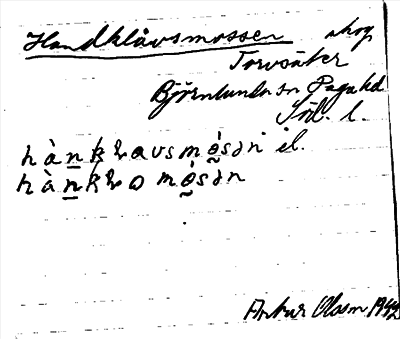 Handklåvsmossen skog
Torvsäker
Björnlunda sn Daga hd
Söd. l.
hànkłavsmo̤sən il.
hànkło mo̤sən
Artur Olsson 1942